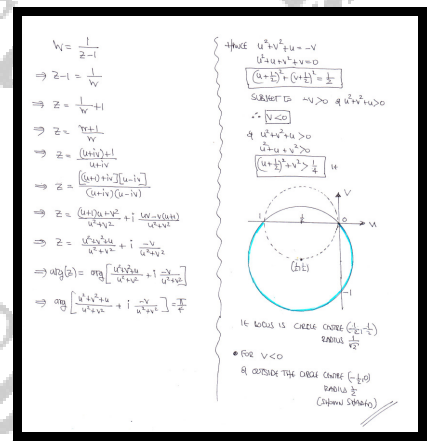 W = 1/(z-1)
⇒ z-1 = 1/w
⇒ z = 1/w + 1
⇒ z = (w+1)/w
⇒ z = ((u+iv)+1)/(u+iv)
⇒ z = [(u+1)+iv][u-iv]/((u+iv)(u-iv))
⇒ z = ((u+1)u+v²)/(u²+v²) + i (uv-v(u+1))/(u²+v²)
⇒ z = (u²+v²+u)/(u²+v²) + i (-v)/(u²+v²)
⇒ arg(z) = arg[(u²+v²+u)/(u²+v²) + i (-v)/(u²+v²)]
⇒ arg[(u²+v²+u)/(u²+v²) + i (-v)/(u²+v²)] = π/4
HENCE u²+v²+u = -v
u²+u+v²+v=0
(u+½)²+(v+½)² = ½
SUBJECT TO -v>0 & u²+v²+u>0
∴ V<0
& u²+v²+u>0
u²+u+v²>0
(u+½)²+v² > ¼
V
0
u
-1
IE LOCUS IS CIRCLE CENTRE (-½,-½)
RADIUS 1/√2
• FOR V<0
& OUTSIDE THE CIRCLE CENTRE (-½,0)
RADIUS ½
(SHOWN